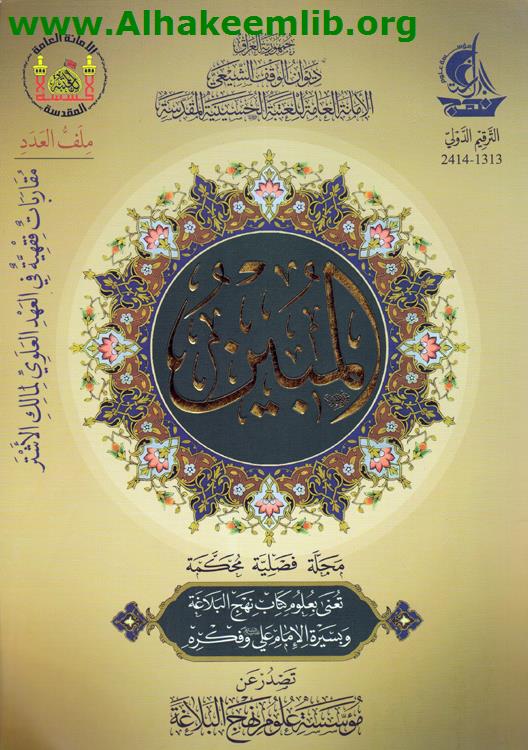 www.Alhakeemlib.org
جمهورية العراق
ديوان الوقف الشيعي
الأمانة العامة للعتبة الحسينية المقدسة
الأمانة العامة
المقدسة
الترقيم الدولي
2414-1313
ملف العدد
مقاربات فقهية في العهد العلوي لمالك الأشتر
المبين
مَجَلَّة فَصْلِيَّة مُحَكَّمَة
تُعنى بعلوم كتاب نهج البلاغة
وبسيرة الإمام علي وفكره
تصدر عن
مؤسسة علوم نهج البلاغة